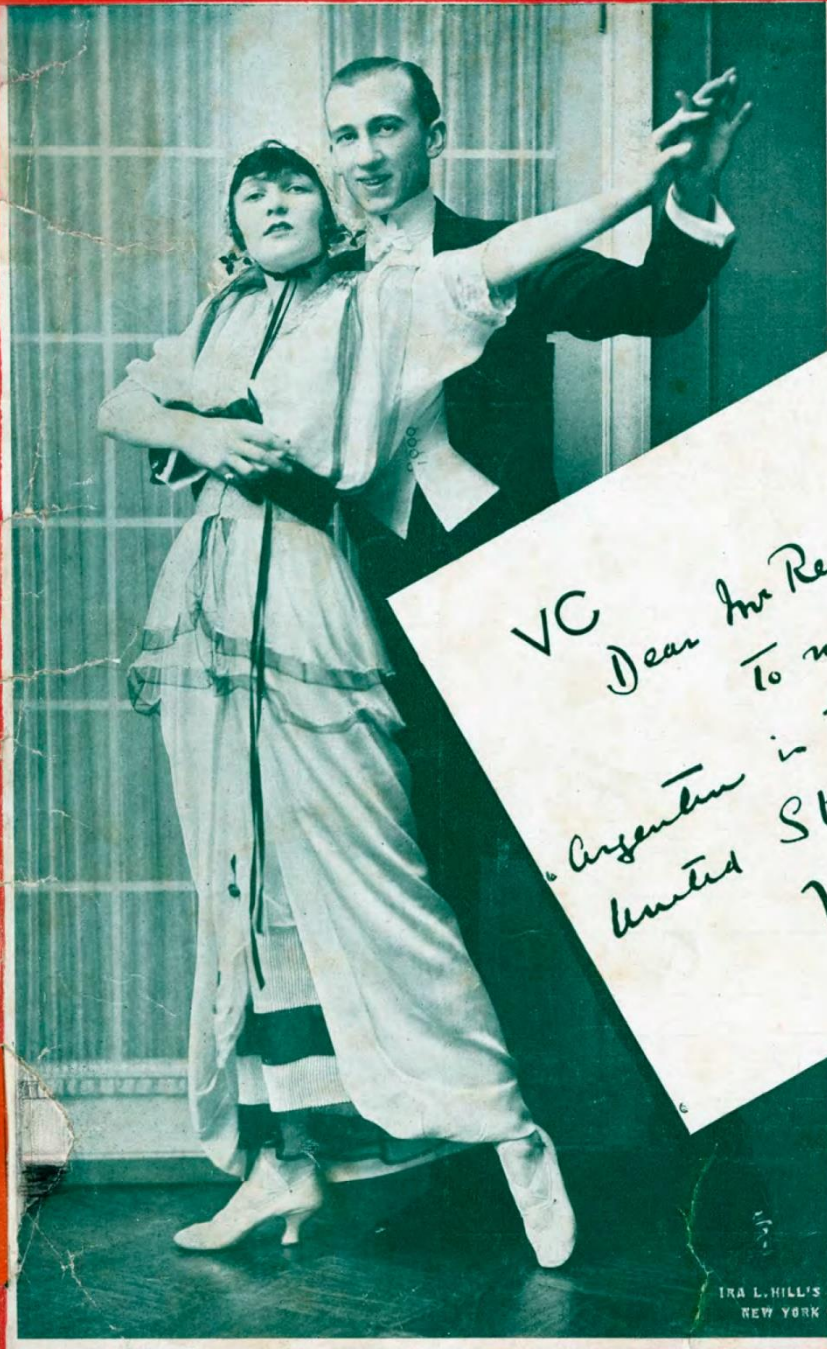 VC
Dear Mr Re
To
Argentin in
United St
IRA L. HILL'S
NEW YORK